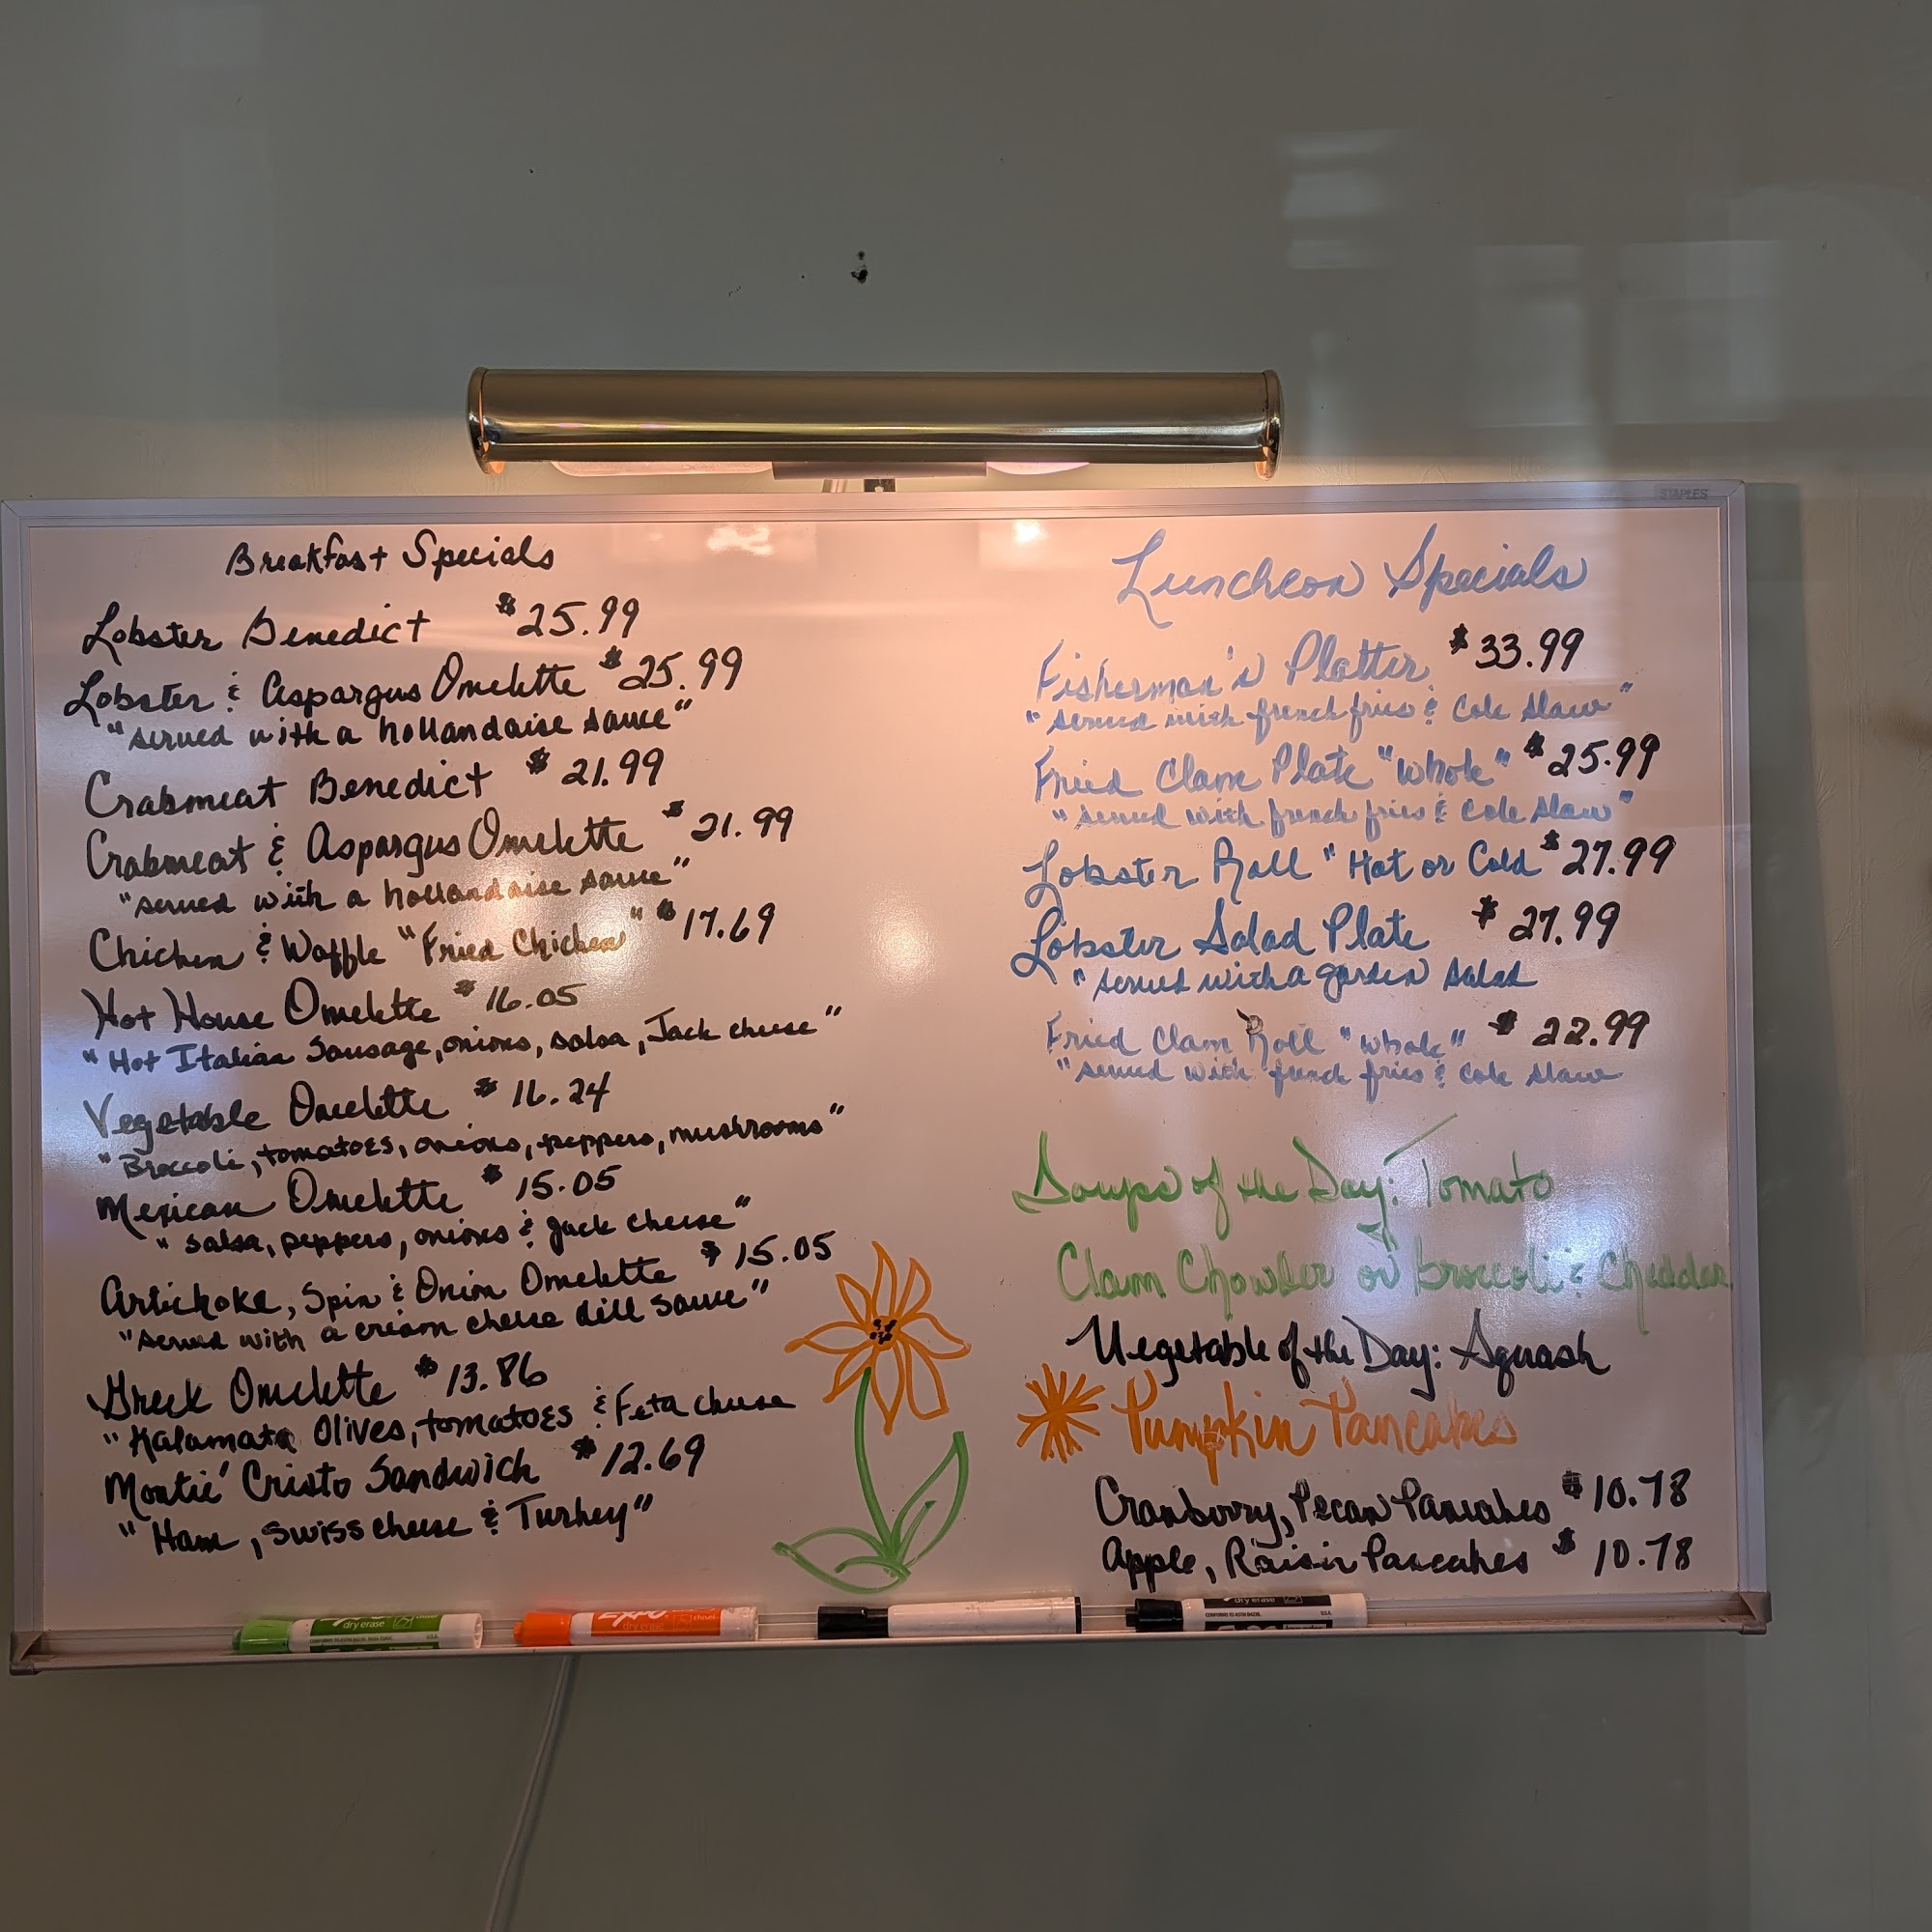 STAPLES
Breakfast Specials
Lobster Benedict $25.99
Lobster & Aspargus Omelette $25.99
"served with a hollandaise sauce"
Crabmeat Benedict $21.99
Crabmeat & Aspargus Omelette $21.99
"served with a hollandaise sauce"
Chicken & Waffle "Fried Chicken" $17.69
Hot House Omelette $16.05
"Hot Italian Sausage, onions, salsa, Jack cheese"
Vegetable Omelette $16.24
"Broccoli, tomatoes, onions, peppers, mushrooms"
Mexican Omelette $15.05
"salsa, peppers, onions & jack cheese"
Artichoke, Spin & Onion Omelette $15.05
"Served with a cream cheese dill sauce"
Greek Omelette $13.86
"Kalamata Olives, tomatoes & Feta cheese
Montie' Cristo Sandwich $12.69
"Ham, swiss cheese & Turkey"
Luncheon Specials
Fisherman's Platter $33.99
"served with french fries & Cole Slaw"
Fried Clam Plate "whole" $25.99
"served with french fries & Cole Slaw"
Lobster Roll "Hot or Cold $27.99
Lobster Salad Plate $27.99
"served with a garden salad
Fried Clam Roll "whole" $22.99
"served with french fries & Cole Slaw
Soups of the Day: Tomato
Clam Chowder or broccoli & Chedder
Vegetable of the Day: Squash
Pumpkin Pancakes
Cranberry, Pecan Pancakes $10.78
Apple, Raisin Pancakes $10.78
dry erase
EXPO
dry erase
chisel